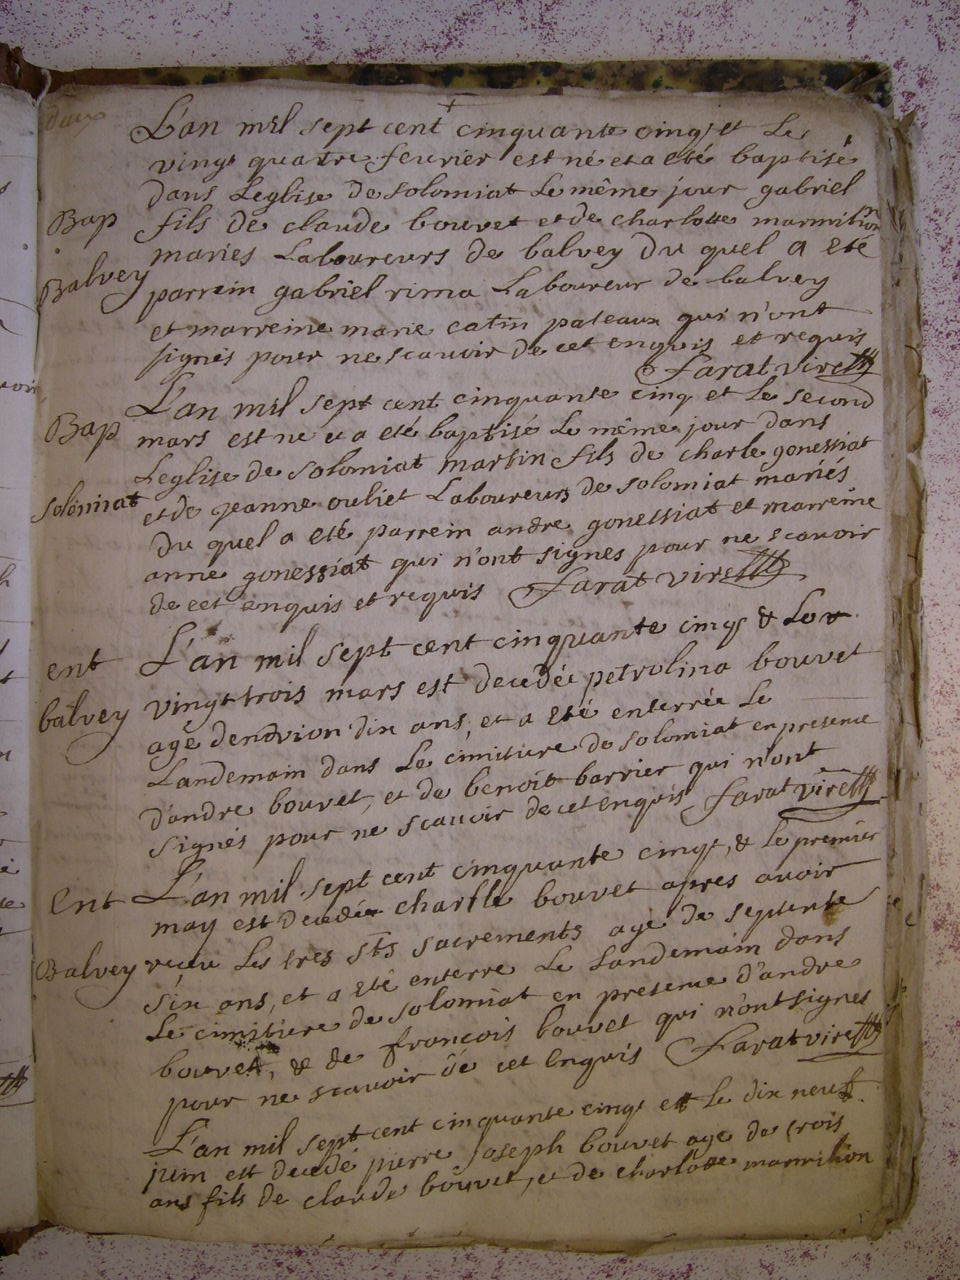 L'an mil sept cent cinquante cinq et Le
vingt quatre fevrier est né et a eté baptisé
dans Leglise de solomiat Le même jour gabriel
Bap fils de claude bouvet et de charlotte marmilion
Balvey mariés Laboureurs de balvey du quel a eté
parrein gabriel rima Laboureur de balvey
et marreine marie catin pateaux qui n'ont
signés pour ne scavoir de cet enquis et requis
farat vire
L'an mil sept cent cinquante cinq et Le second
Bap mars est ne et a eté baptisé Le même jour dans
Leglise de Solomiat martin fils de charle gonessiat
solomiat et de jeanne ouliet Laboureurs de solomiat mariés
du quel a eté parrein andre gonessiat et marreine
anne gonessiat qui n'ont signes pour ne scavoir
de cet enquis et requis farat vire
ent L'an mil sept cent cinquante cinq & Le
balvey vingt trois mars est decedée petrolina bouvet
age denvion dix ans, et a eté enterrée Le
Landemain dans Le cimitiere de solomiat en presence
d'andre bouvet, et de benoit barrier qui n'ont
signés pour ne scavoir de cet enquis farat vire
Ent L'an mil sept cent cinquante cinq, & le premier
may est decedée charlle bouvet apres avoir
Balvey receu Les tres sts sacrements age de septente
six ans, et a eté enterre Le Landemain dans
Le cimitiere de solomiat en presence d'andre
bouvet, & de francois bouvet qui n'ont signes
pour ne scavoir de cet enquis farat vire
L'an mil sept cent cinquante cinq et Le dix neuf
juin est decedé pierre joseph bouvet age de trois
ans fils de claude bouvet, et de charlotte marmilion